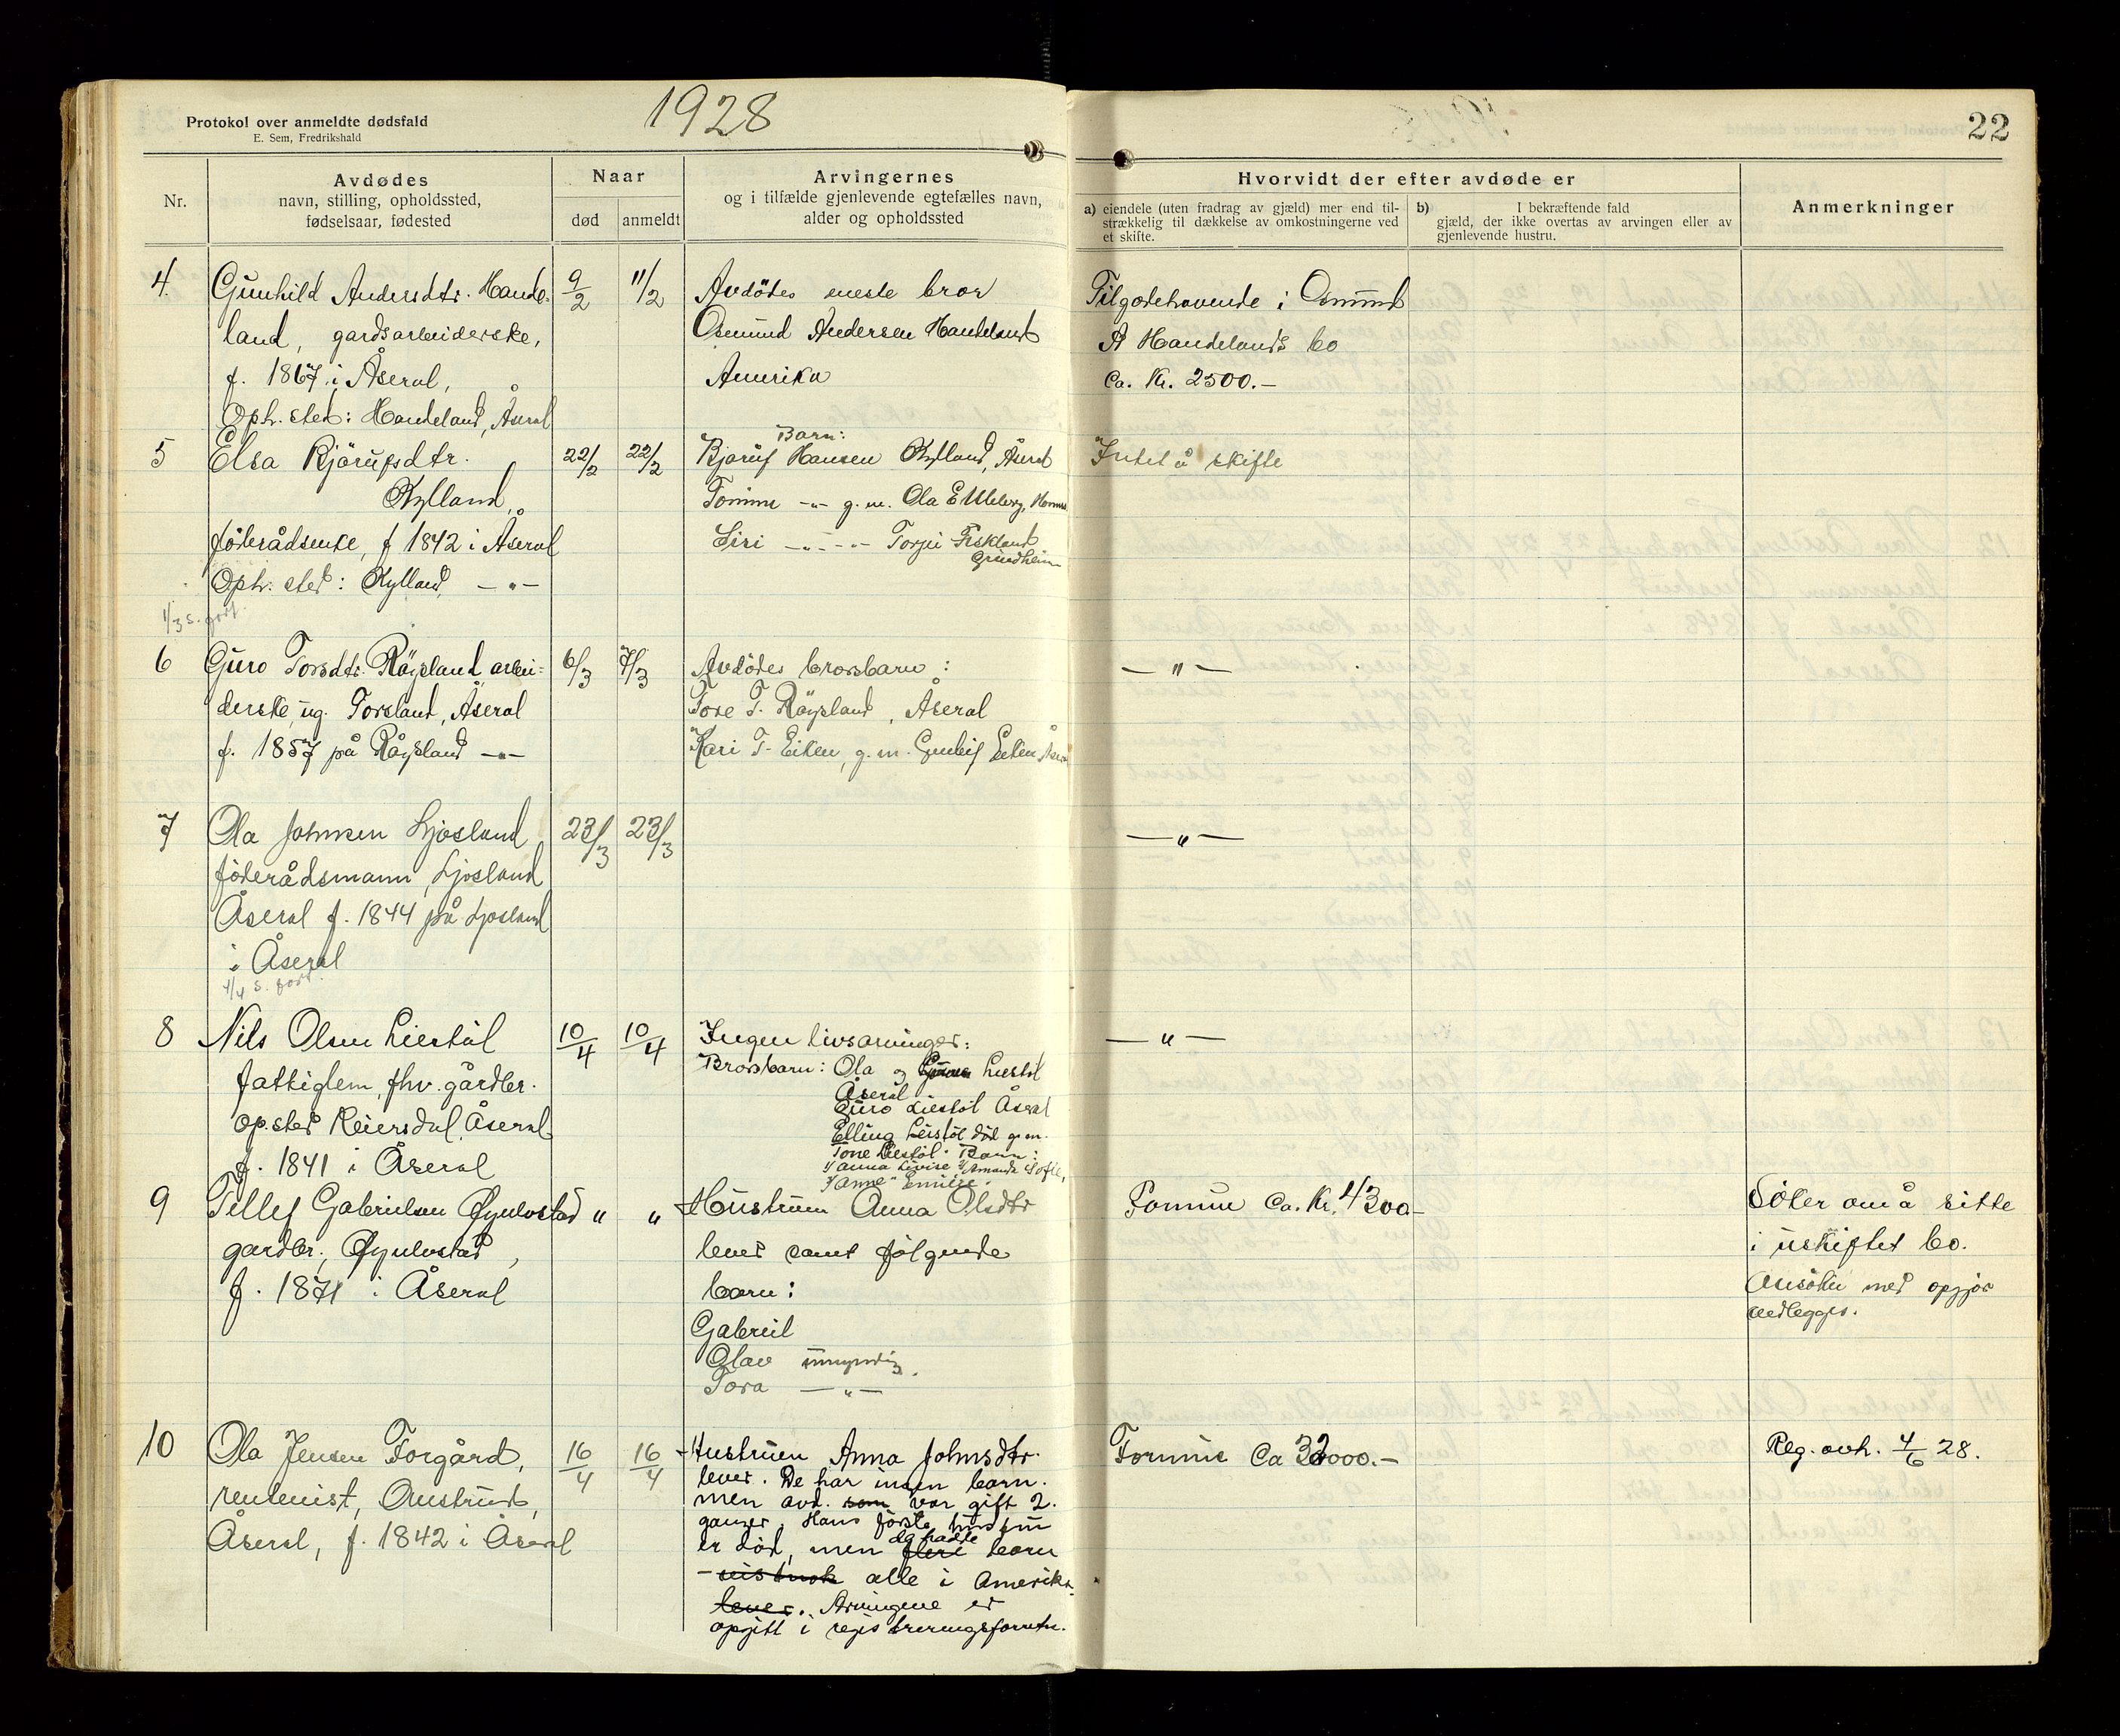 1928
22
Protokol over anmeldte dødsfald
E. Sem, Fredrikshald
Nr.
Avdødes
navn, stilling, opholdssted,
fødselsaar, fødested
Naar
død
anmeldt
Arvingernes
og i tilfælde gjenlevende egtefælles navn,
alder og opholdssted
Hvorvidt der efter avdøde er
a) eiendele (uten fradrag av gjæld) mer end til-
strækkelig til dækkelse av omkostningerne ved
et skifte.
b) I bekræftende fald
gjæld, der ikke overtas av arvingen eller av
gjenlevende hustru.
Anmerkninger
4
Gunhild Andersdtr. Hande-
land, gardsarbeiderske,
f. 1867 i Åseral,
Oph. sted: Handeland, Åseral
9/2
11/2
Avdödes neste bror
Osmund Andersen Handeland
Amerika
Tilgodehavende i Osmund
A Handelands bo
Ca. Kr. 2500.-
5
Elsa Bjørufsdtr.
Kylland,
föderådsenke, f 1842 i Åseral
Oph. sted: Kylland, -"-
1/3 s. gort.
22/2
22/2
Barn:
Bjøruf Hansen Kylland, Åseral
Tomine -"- g. m. Ola E Ubleberg,
Siri -"- -"- Torjei Fiskland
Grindheim
Intet å skifte
6
Guro Torsdtr. Röysland, arbei-
derske, ug. Torsland, Åseral
f. 1857 på Röysland -"-
6/3
7/3
Avdödes brorsbarn:
Tore T. Röysland, Åseral
Kari T. Eiken, g. m. Gunleif Eiken
-"-
7
Ola Johnsen Ljosland
föderådsmann, Ljosland
Åseral f. 1844 på Ljosland
i Åseral
4/4 s. gort.
23/3
23/3
-"-
8
Nils Olsen Liestöl
fattiglem, fhv. gårdbr.
op.sted Reiersdal, Åseral
f. 1841 i Åseral
10/4
10/4
Ingen livsarvinger:
Brorsbarn: Ola og Liestöl
Åseral
Guro Liestöl Åseral
Elling Leistöl död g. m.
Tone Liestöl. Barn:
1/ Anna Lovise 2/ Amanda Sofie,
3/ Anne Emilie.
-"-
9
Tellef Gabrielsen Øyulvstad
gardbr., Øyulvstad,
f. 1871 i Åseral
"
"
Hustruen Anna Olsdtr
lever samt fölgende
barn:
Gabriel
Olav umyndig.
Tora -"-
Formue Ca. Kr. 4300-
Söker om å sitte
i uskiftet bo.
Ansöken med opgjör
vedlegges.
10
Ola Jensen Forgård,
rentenist, Austrud,
Åseral, f. 1842 i Åseral
16/4
16/4
Hustruen Anna Johnsdtr.
lever. De har ingen barn.
men avd. som var gift 2.
ganger. Hans förste hustru
er död, men
og hadde
flere barn
- vistnok alle i Amerika
lever. Arvingene er
opgitt i registreringsforretn.
Formue Ca 32000.-
Reg. avh. 4/6 28.